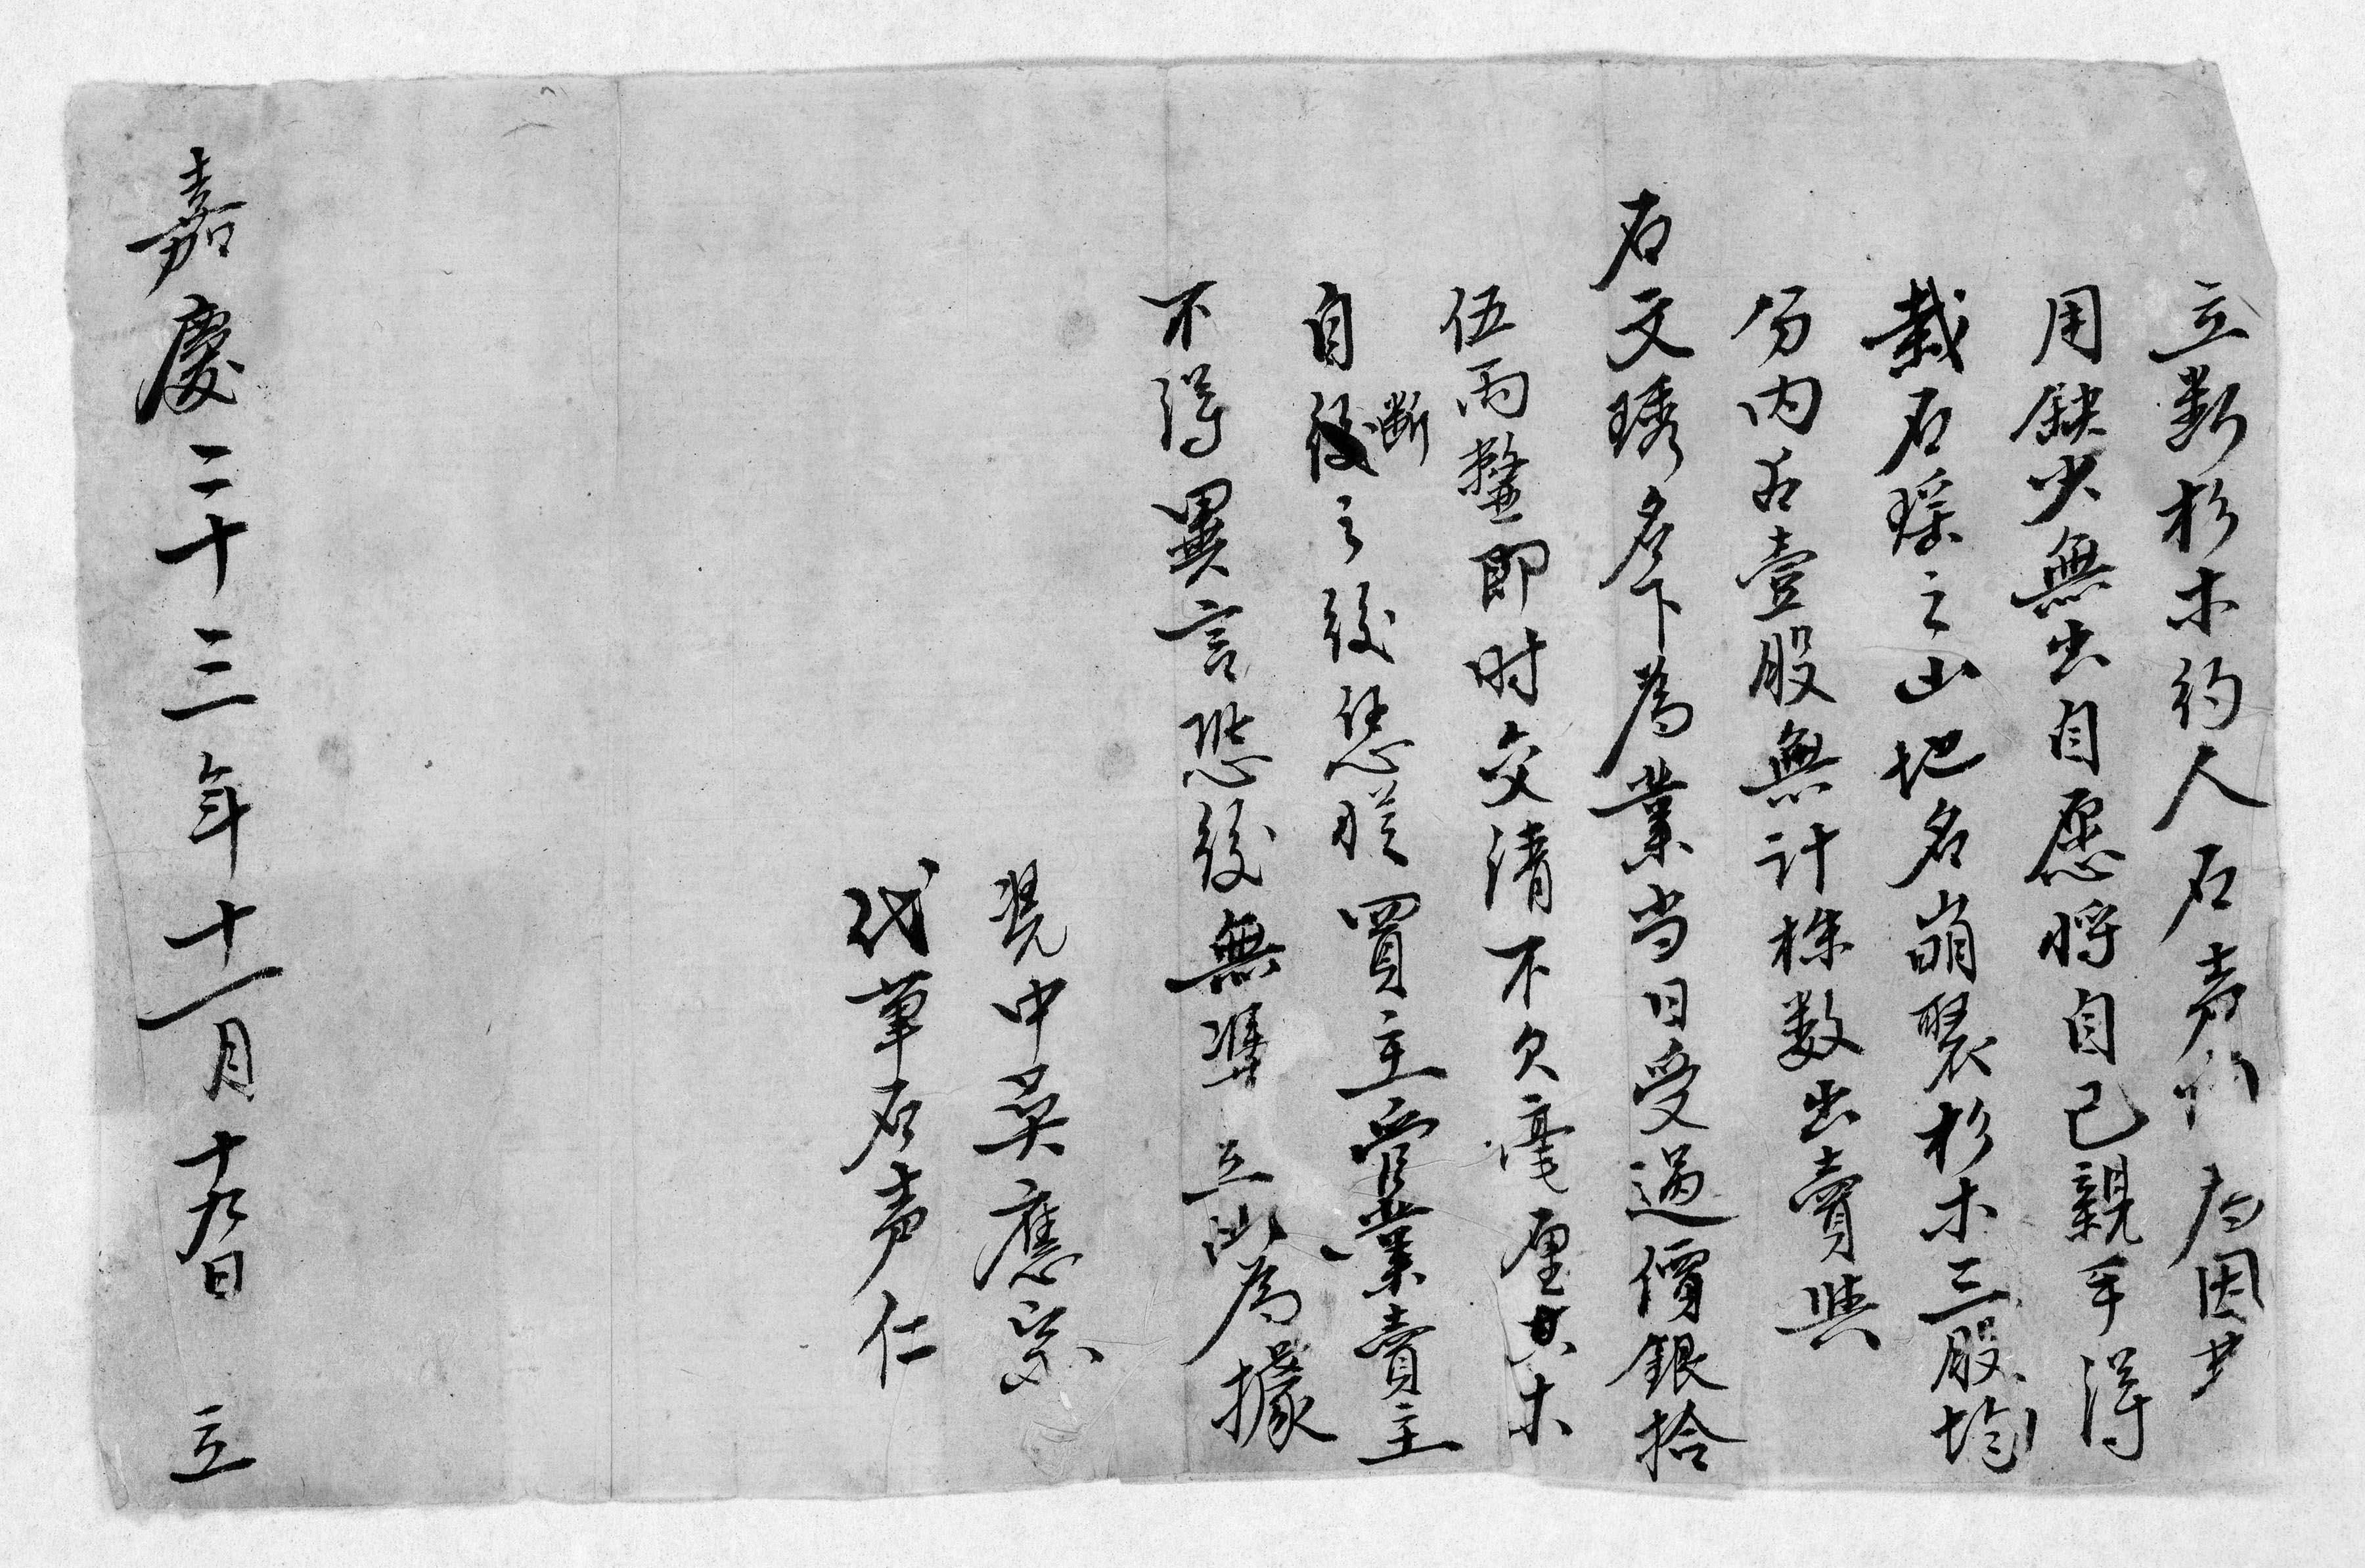 立斷杉木約人石声 為因少
用缺少無出自愿將自己親手得
栽石璨之山地名崩裂杉木三股均
分内占壹股無計株数出賣與
石文琇名下為業当日受過價銀拾
伍両整即时交清不欠毫厘其木
自斷之後恁從買主管業賣主
不得異言恐後無憑立此為據
凴中吳應宗
代筆石声仁
嘉慶二十三年十一月十九日 立